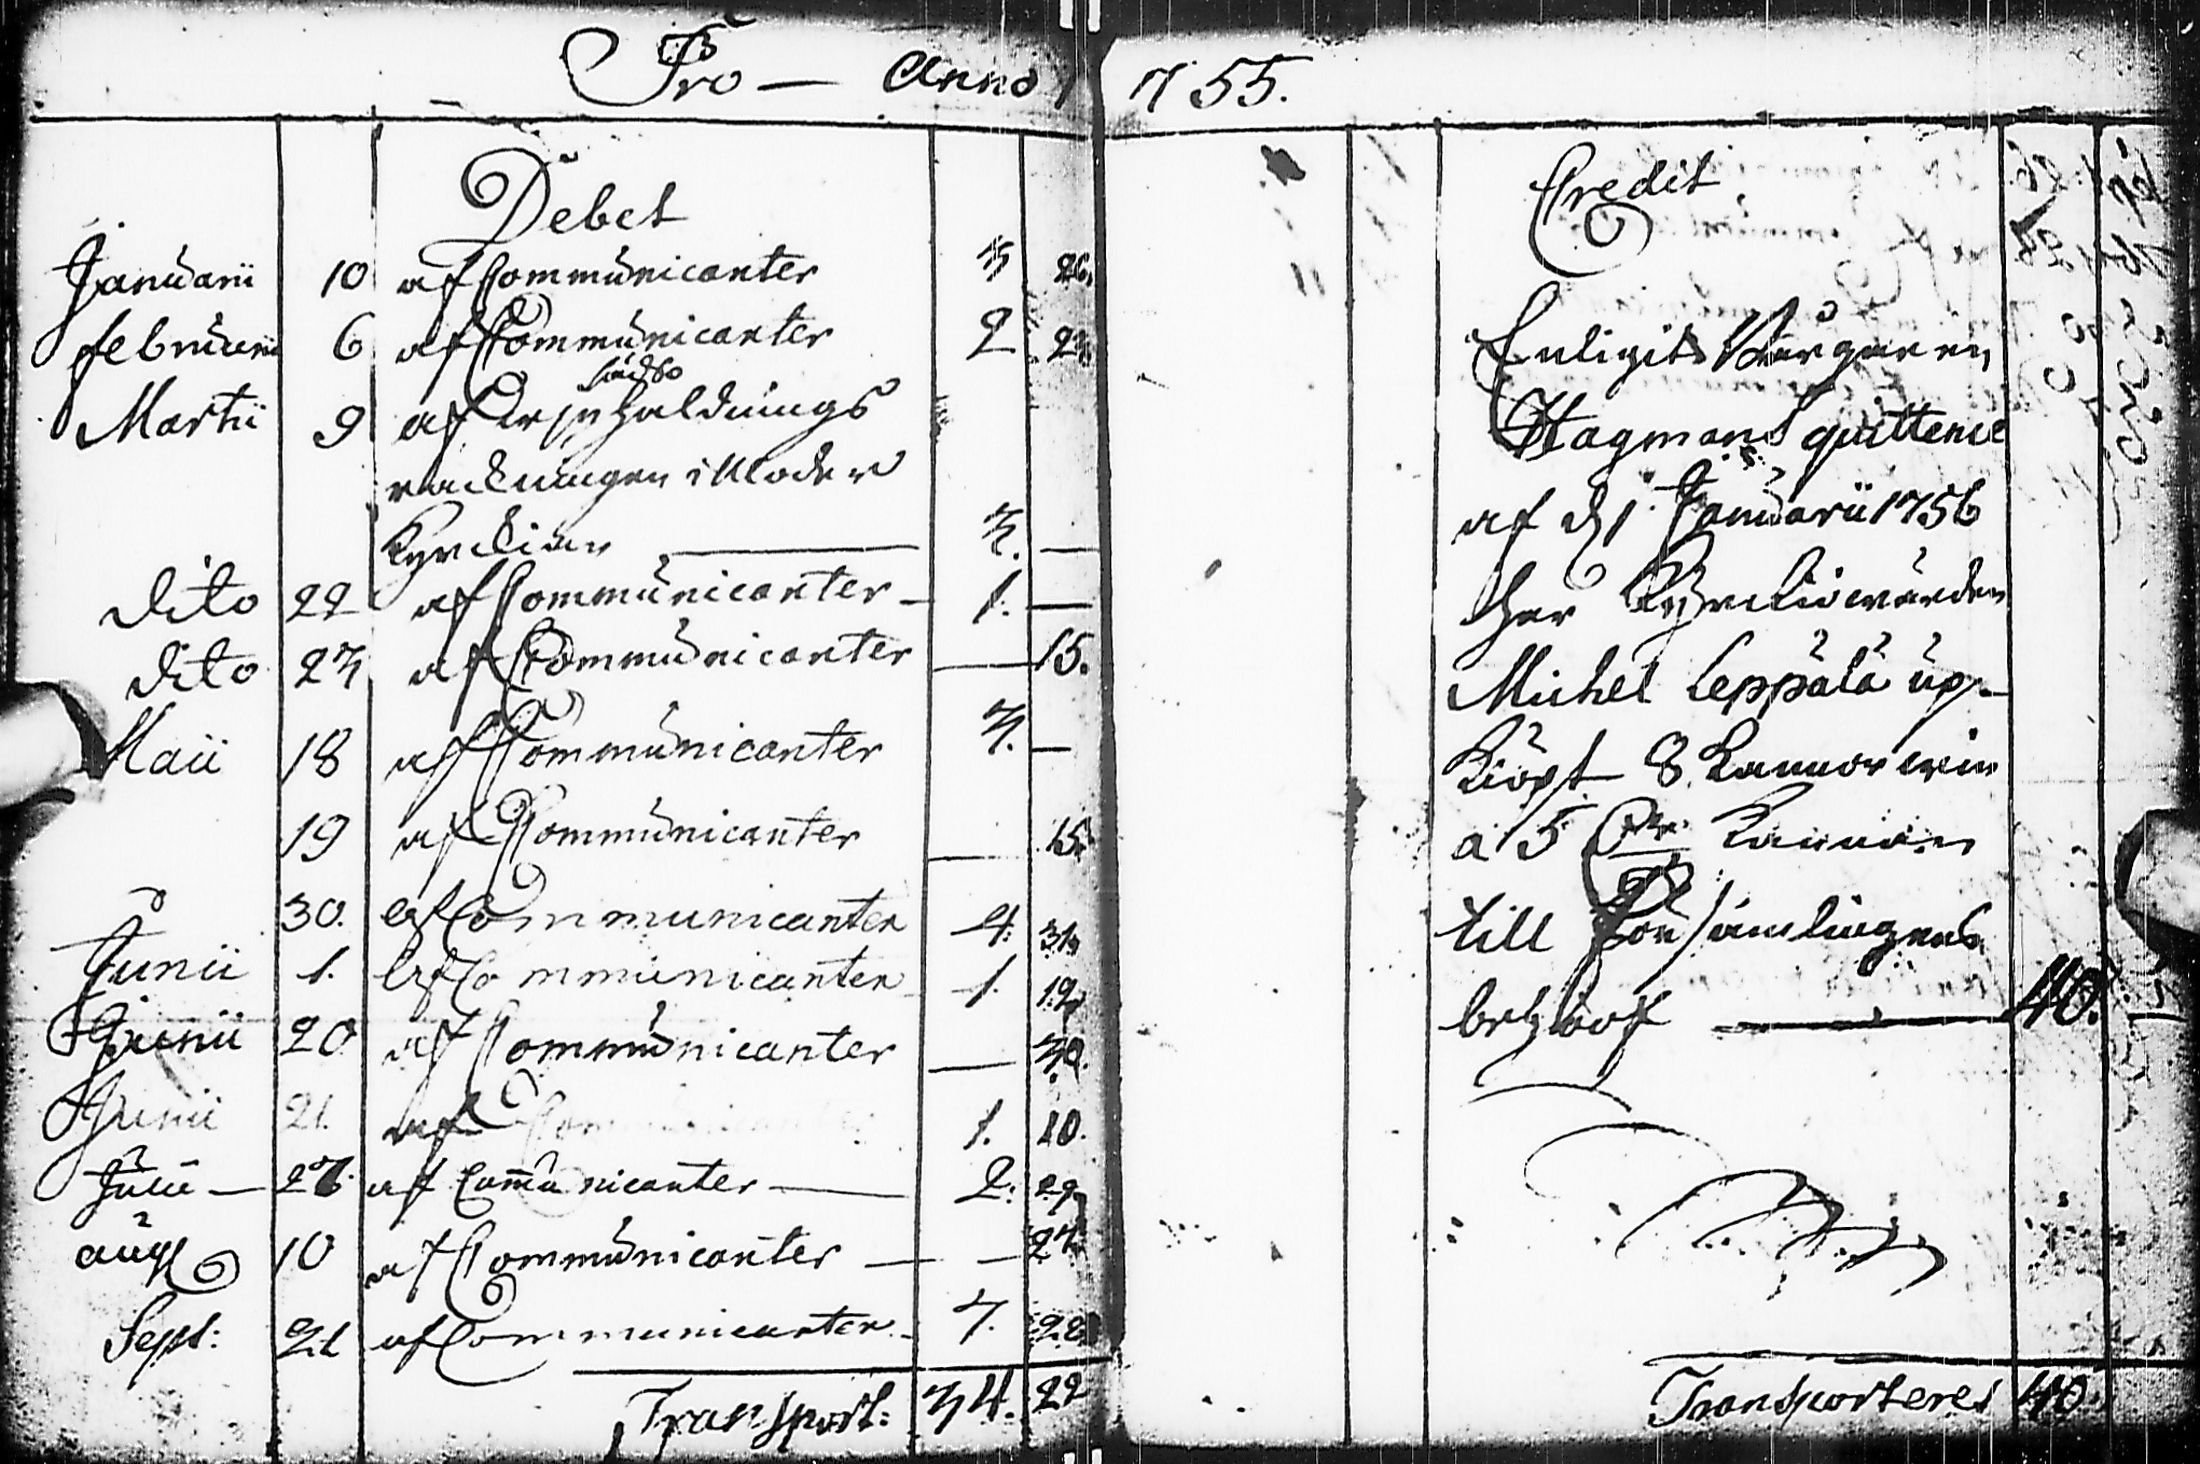 Pro — Anno 1755.
Debet
Januarii 10 af Communicanter 3 26.
februarii 6 af Communicanter 2 23.
Martii 9 af haldnings
räckningen i Moder
Kyrckian — 3. —
dito 22 af Communicanter — 1. —
dito 23 af Communicanter — 15.
Maii 18 af Communicanter 3. —
19 af Communicanter — 15.
30. af Communicanter 4. 31.
Junii 1. af Communicanter 1. 19.
Junii 20 af Communicanter — 30.
Junii 21. af Communicanter 1. 10.
Julii — 27. af Communicanter — 2. 29.
aug 10 af Communicanter — — 27.
Sept: 21 af Communicanter 7. 28.
Transport: 34. 22
Credit
Enligit Borgaren
Hagmans quittence
af d. 1 Januarii 1756
har Kyrckiowärden
Michel Leppälä up-
kiöpt 8 Kannor win
a 5 Kannan
till Församlingens
behoof — 40.
Transporteres 40.